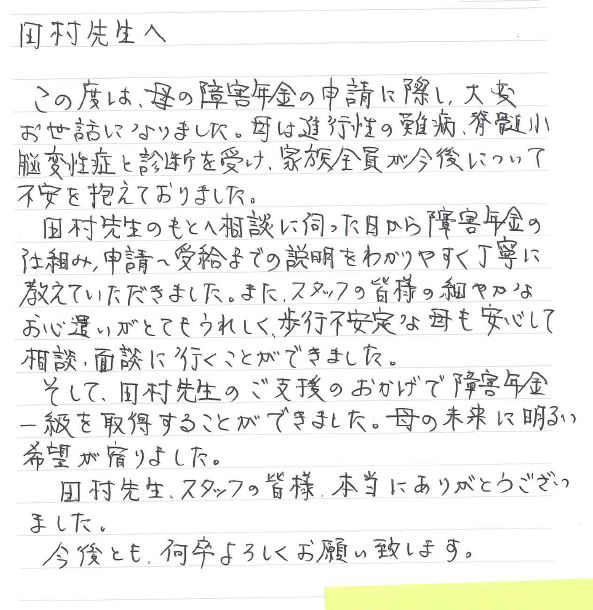 田村先生へ
この度は、母の障害年金の申請に際し、大変
お世話になりました。母は進行性の難病、脊髄小
脳変性症と診断を受け、家族全員が今後について
不安を抱えておりました。
田村先生のもとへ相談に伺った日から障害年金の
仕組み、申請〜受給までの説明をわかりやすく丁寧に
教えていただきました。また、スタッフの皆様の細やかな
お心遣いがとてもうれしく、歩行不安定な母も安心して
相談、面談に行くことができました。
そして、田村先生のご支援のおかげで障害年金
一級を取得することができました。母の未来に明るい
希望が宿りました。
田村先生、スタッフの皆様、本当にありがとうござい
ました。
今後とも、何卒よろしくお願い致します。